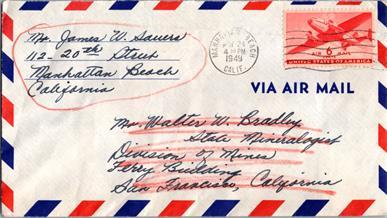 Mr. James W. Sauers
112-20th Street
Manhattan Beach
California
MANHATTAN BEACH
24
4 PM
1949
CALIF.
6¢
AIR MAIL
UNITED STATES OF AMERICA
VIA AIR MAIL
Mr. Walter W. Bradley
State Mineralogist
Division of Mines
Ferry Building
San Francisco, California